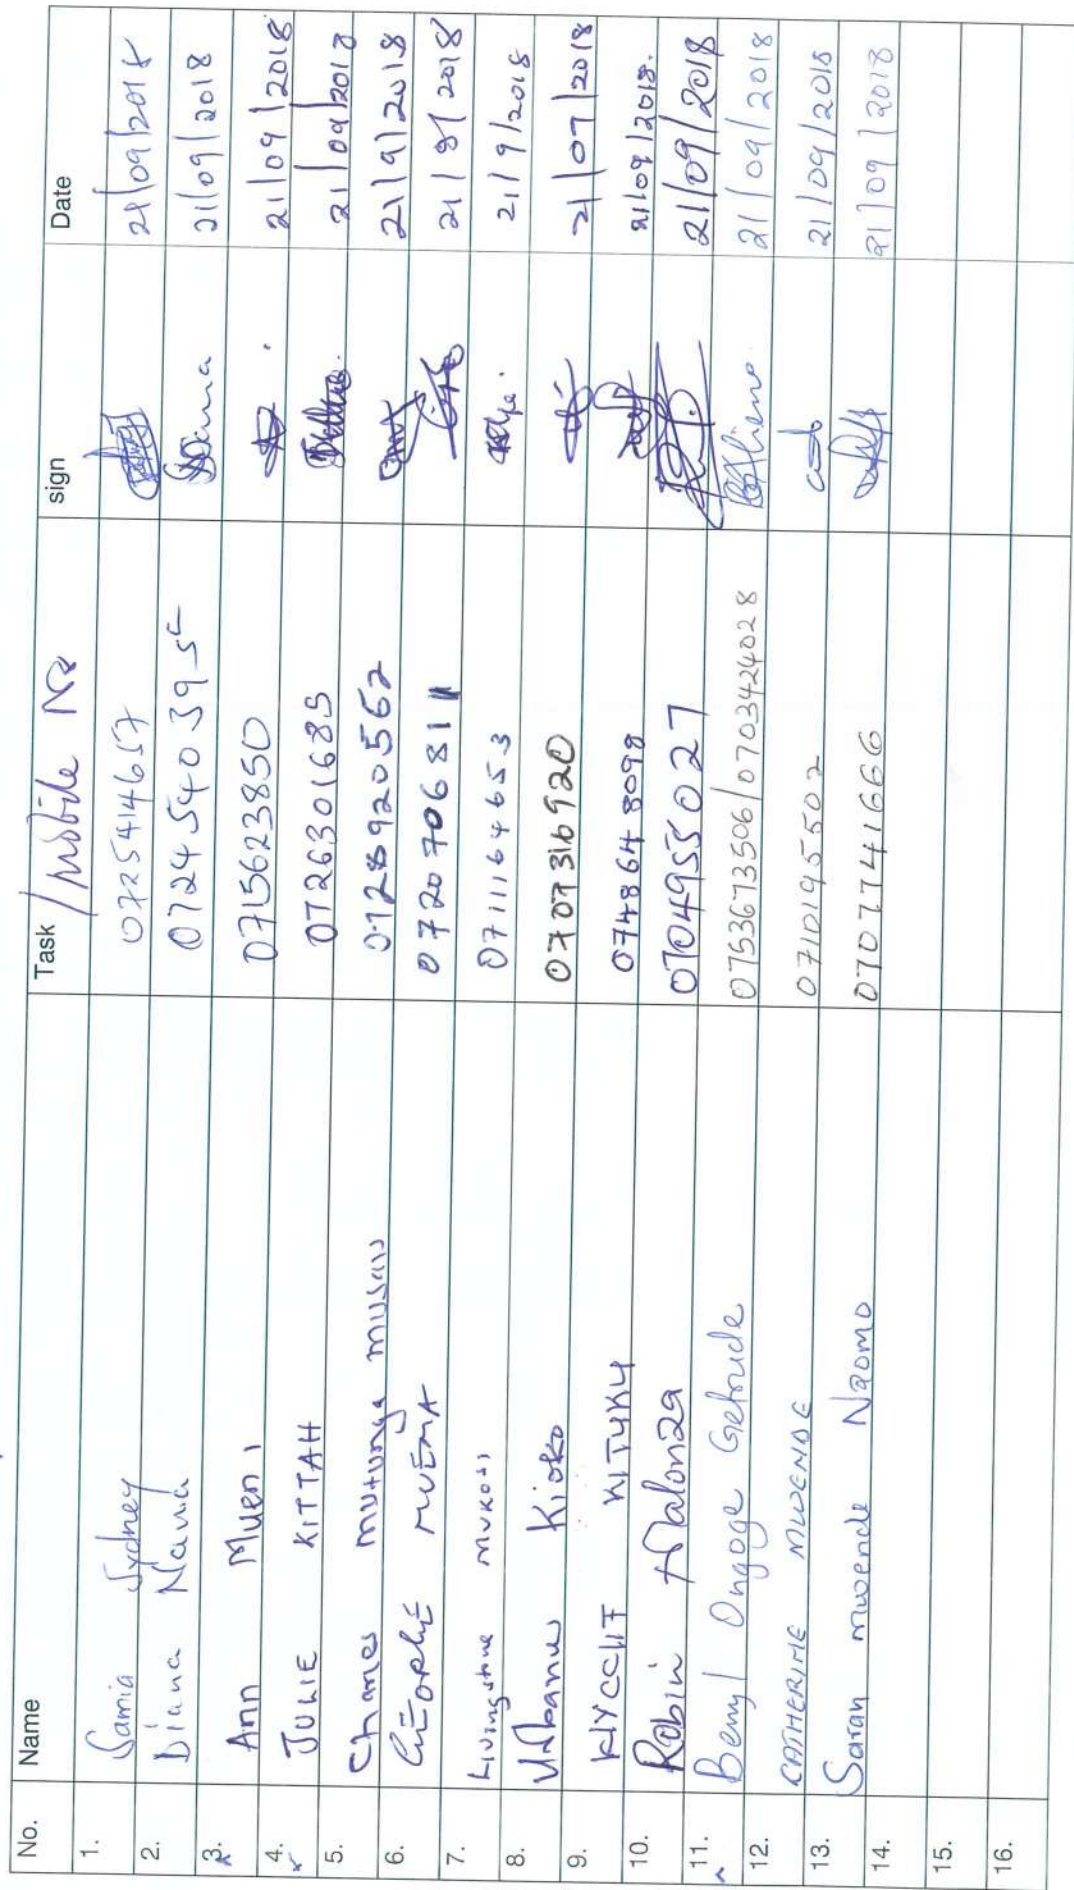 No. Name Task /Mobile No sign Date
1. Samia Sydney 0725414657 21/09/2018
2. Diana Navia 0724540395 21/09/2018
3. Ann Mueni 0715623850 21/09/2018
4. JULIE KITTAH 0726301685 21/09/2018
5. Charles Mutunga Musau 0728920562 21/9/2018
6. MUEMA 0720706811 21/8/2018
7. Livingstone Mukosi 0711164653 21/9/2018
8. Urbanus Kioko 0707316920 21/07/2018
9. KITUKU 0748648098 21/09/2018.
10. Robin Malonza 0704955027 21/09/2018
11. Beryl Ongoge Getrude 0753673506/0703424028 21/09/2018
12. CATHERINE MWENDE 0710195502 21/09/2018
13. Sarah mwende Naomo 0707741666 21/09/2018
14.
15.
16.